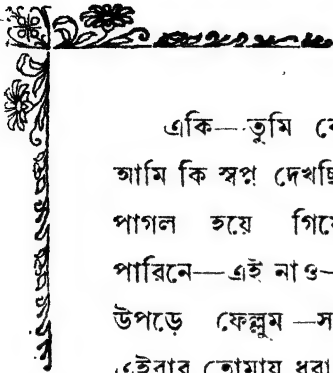 একি—তুমি
আমি কি স্বপ্ন
পাগল হয়ে
পারিনে—এই নাও—
উপড়ে ফেল্লুম —
এইবার তোমায়